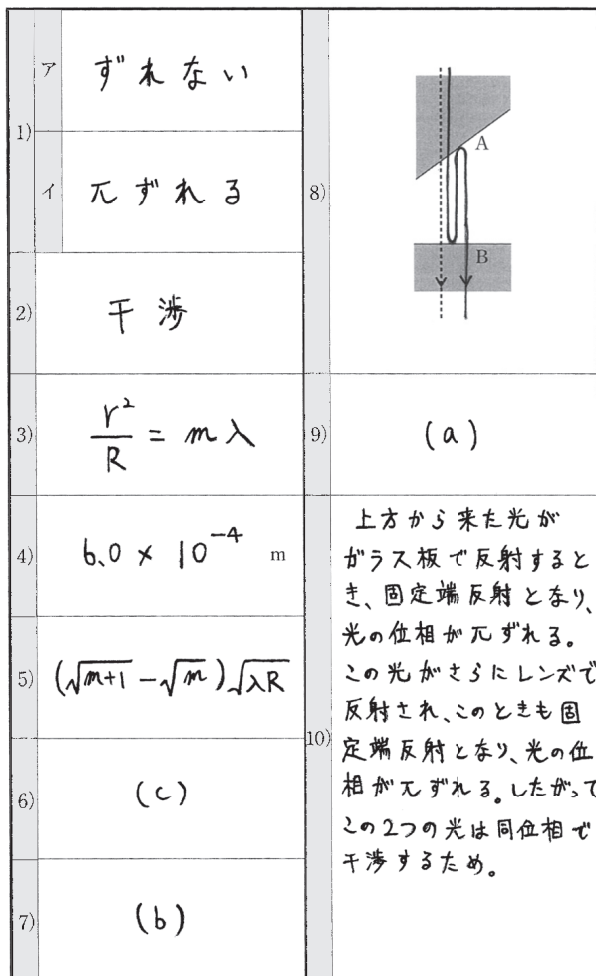 1)
ア ずれない
イ πずれる
2) 干渉
3) r²/R = mλ
4) 6.0 × 10⁻⁴ m
5) (√(m+1) − √m)√(λR)
6) (c)
7) (b)
8)
A
B
9) (a)
10)
上方から来た光が
ガラス板で反射すると
き、固定端反射となり、
光の位相がπずれる。
この光がさらにレンズで
反射され、このときも固
定端反射となり、光の位
相がπずれる。したがって
この2つの光は同位相で
干渉するため。